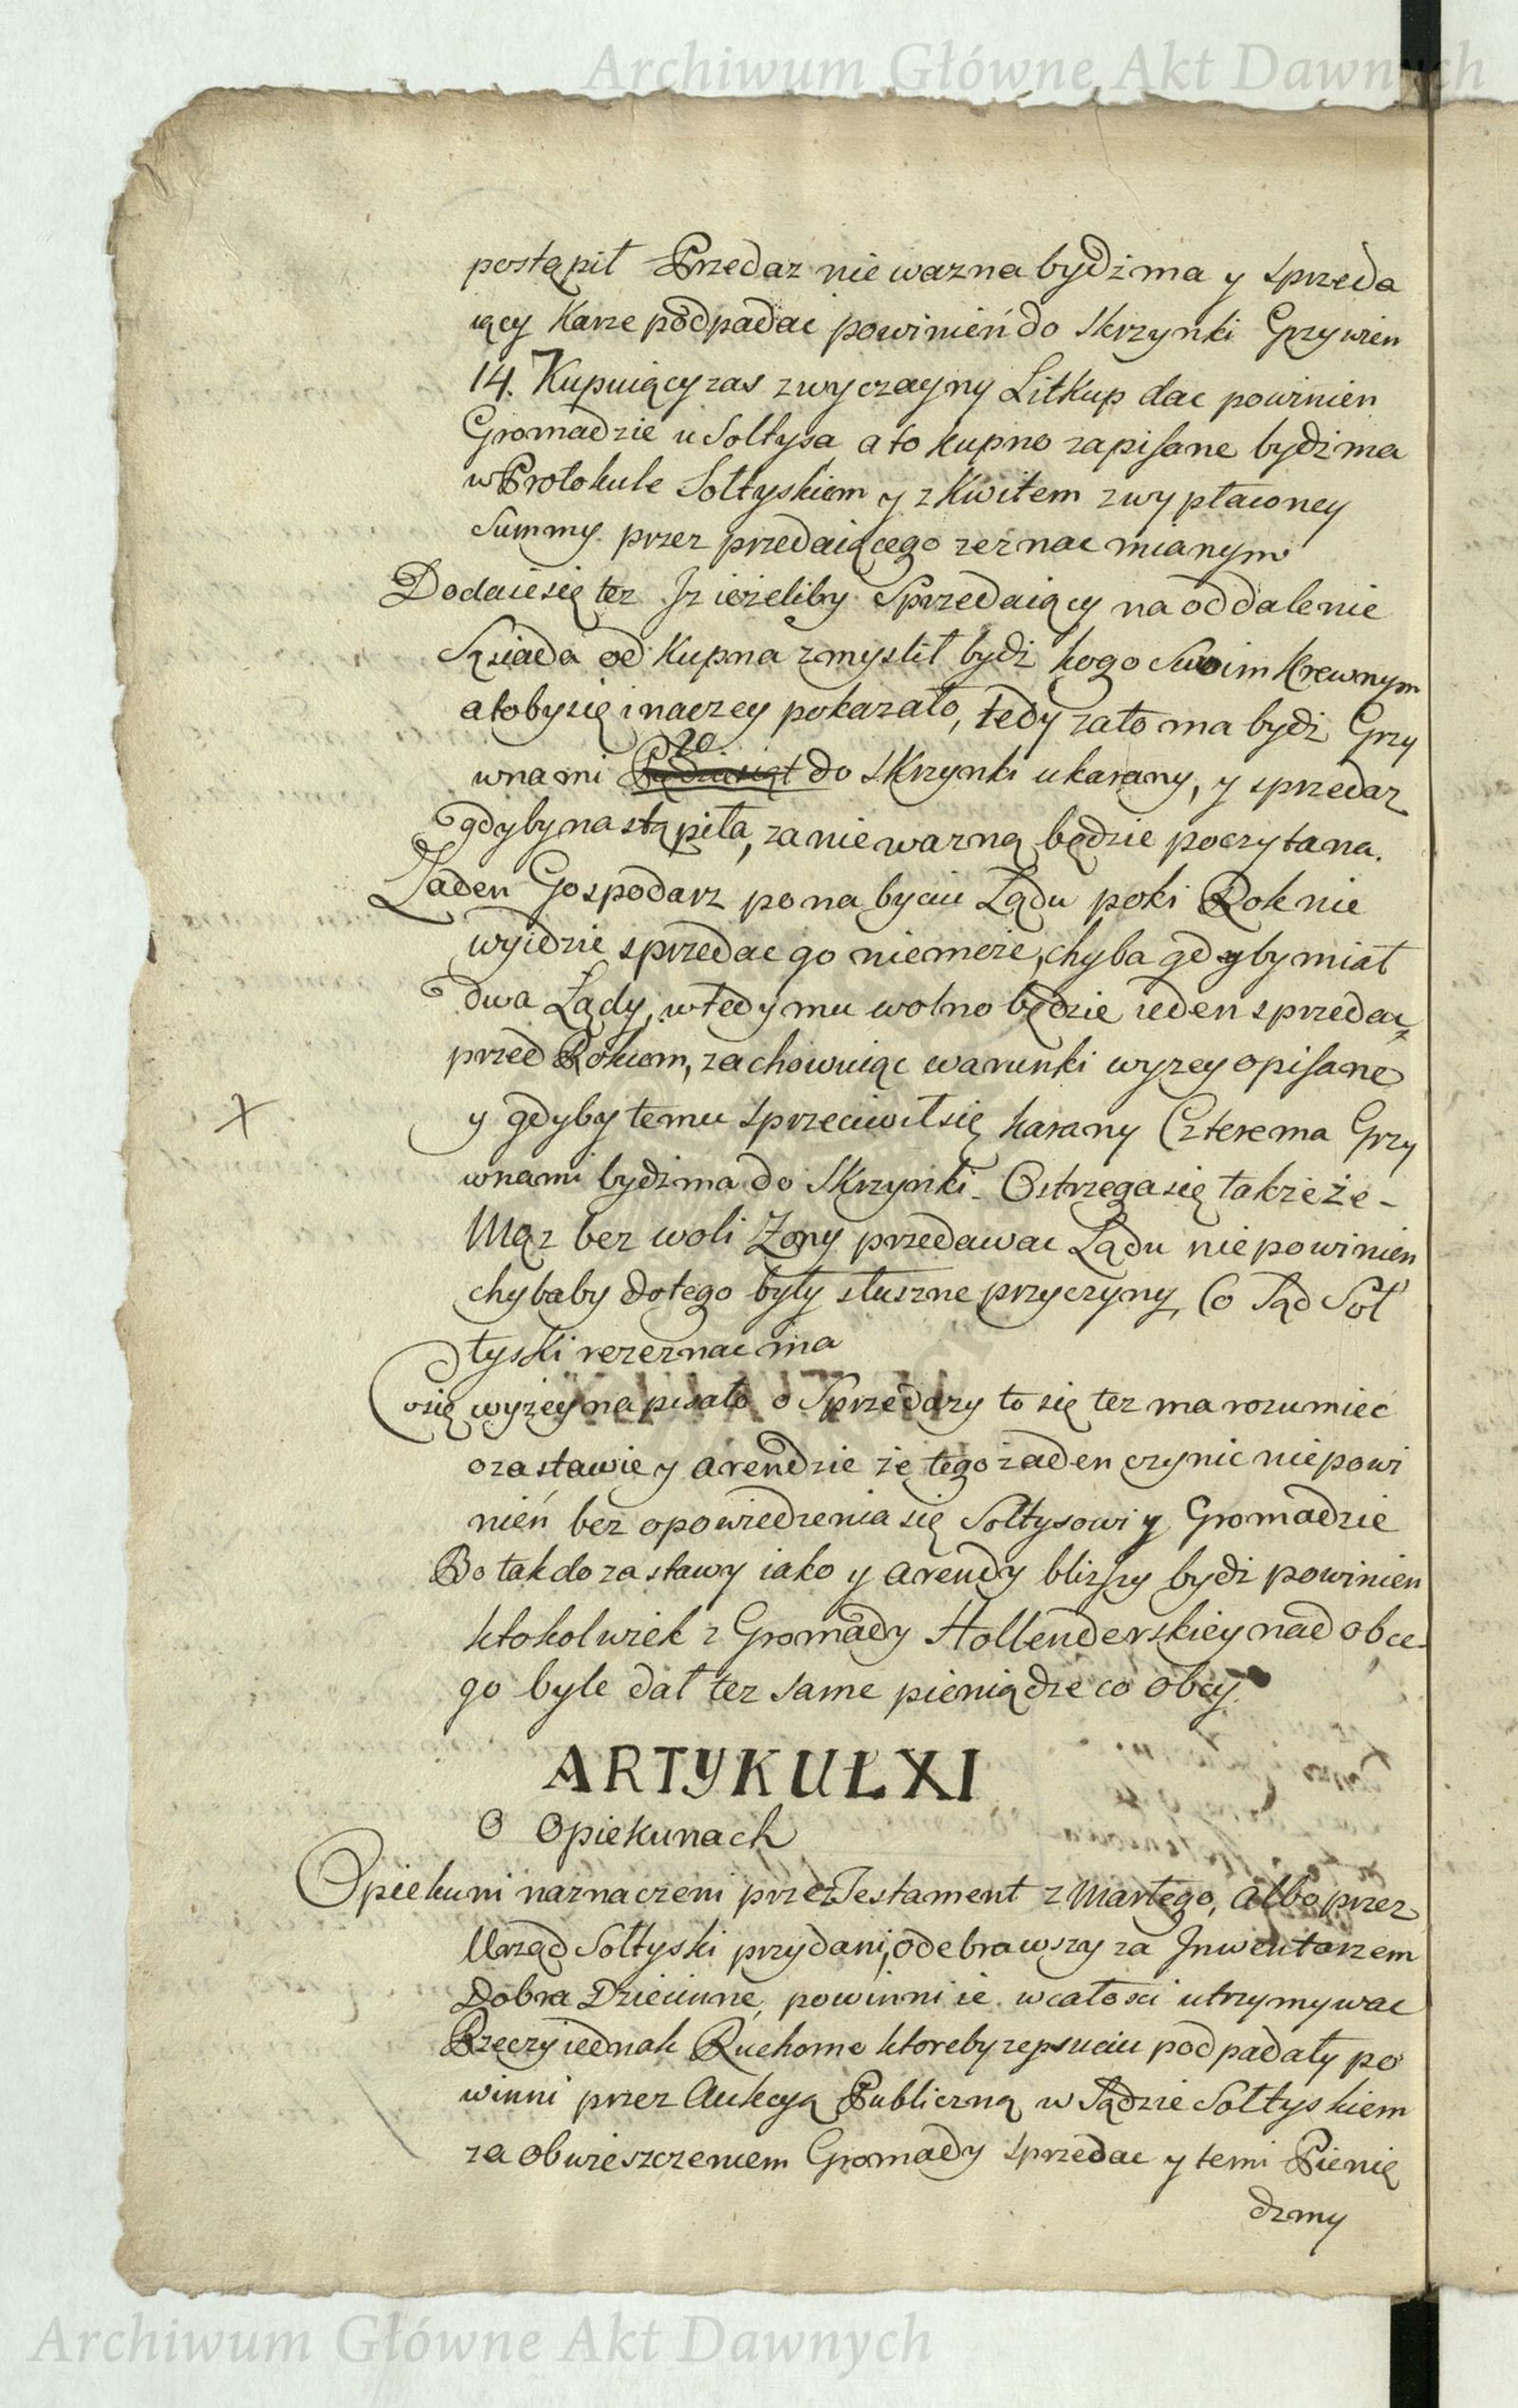 Archiwum Główne Akt Dawnych
postąpił Przedaz nie wazna bydź ma y sprzeda
iący Karze podpadac powinień do Skrzynki Grzywien
14. Kupuiący zas zwyczayny Litkup dac powinien
Gromadzie u Soltysa a to kupno zapisane bydź ma
w Protokule Soltyskiem y z Kwitem z wypłaconey
Summy przez przedaiącego zeznac mianym
Dodaie się tez Iz ieżeliby Sprzedaiący na oddalenie
Sąsiada od Kupna zmyslił bydź kogo Swoim Krewnym
a toby się inaczey pokazało, tedy za to ma bydź Grzy
20
wnami do Skrzynki ukarany, y sprzedaz
gdyby nastąpiła, za nie wazną będzie poczytana.
Zaden Gospodarz po nabyciu Lądu poki Rok nie
wyidzie sprzedac go niemoze, chyba gdyby miał
dwa Lądy, wtedy mu wolno będzie ieden sprzedac
przed Rokiem, zachowuiąc warunki wyzey opisane
y gdyby temu sprzeciwił się karany Czterema Grzy
X
wnami bydź ma do Skrzynki. Ostrzega się także że -
Mąz bez woli Zony przedawac Lądu nie powinien
chybaby do tego były słuszne przyczyny, Co Sąd Soł
tyski rozeznac ma
Co się wyżey napisało o Sprzedazy to się tez ma rozumieć
o zastawie y arendzie że tego żaden czynic niepowi
nień bez opowiedzenia się Sołtysowi y Gromadzie
Bo tak do zastawy iako y arendy blizszy bydź powinien
ktokolwiek z Gromady Hollenderskiey nad obce-
go byle dał tez same pieniądze co obcy.
ARTYKUŁ XI
O Opiekunach
Opiekuni naznaczeni przez Testament zmarłego, albo przez
Urząd Sołtyski przydani, odebrawszy za Inwentarzem
Dobra Dziecinne, powinni ie w całosci utrzymywac
Rzeczy iednak Ruchome ktoreby zepsuciu podpadały po
winni przez Aukcyą Publiczną w Sądzie Sołtyskiem
za obwieszczeniem Gromady sprzedac y temi Pienię
dzmy
Archiwum Główne Akt Dawnych